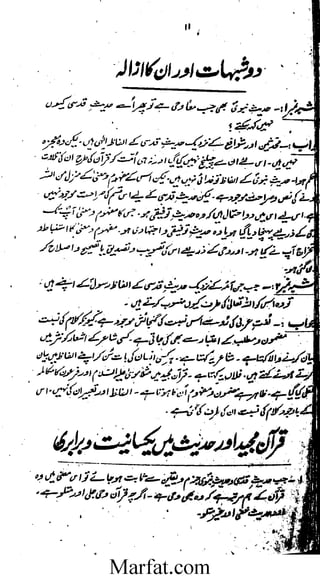 ۱۱
دو شبہات اور ان کا ازالہ
شبہ نمبر ۱:- حدیث نبویؐ بھی جب سماوی ہے تو پھر اسے حدیث قدسی کیوں
نہیں کہہ سکتے؟
اب:- محدثین اور شوافع کے نزدیک حدیث قدسی کے الفاظ الٰہی ہیں، لیکن وہ معجزہ
نہیں ہیں۔ اس لیے ان سے چیلنج نہیں کیا گیا اور نہ ہی امت کو قرآن کی طرح ان کی تلاوت
ہوا۔ حدیث نبوی کے الفاظ تو خدائی نہیں ہیں۔ لیکن اس کے مفہوم و معنیٰ کے منزل من اللہ
ہونے کی نص و صراحت موجود ہے۔ لیکن حدیث قدسی کے لیے اس قسم کی صراحت موجود نہیں
ہے۔ اس لیے اس میں دو احتمال ہیں کہ وہ حدیث توقیفی ہو۔ جس کا مفہوم و معنی آپؐ تک
کے ذریعے پہنچا دیا گیا ہو یا وہ حدیث توفیقی و اجتہادی ہو۔ مفہوم و معنی کا استنباط و
تخراج آپؐ نے کیا ہو۔ اور وحی کے ذریعے اس کی تصویب و تصدیق یا تصحیح و اصلاح کر
دی گئی ہو۔
شبہ نمبر ۲:- جب جن آئمہ کے نزدیک حدیث قدسی کے الفاظ رسولؐ کے اپنے ہیں۔
تو وہ اس کو اللہ تعالیٰ کی طرف کیوں منسوب کرتے ہیں۔
جواب:- لغت عربی کی رُو سے اس نسبت کی گنجائش موجود ہے کیونکہ کلام کی نسبت
مضمون و مطلب کے اعتبار سے بھی کی جاتی ہے۔ کسی شاعر کے اشعار کو نثر میں
بیان کرنے والا کہتا ہے۔ شاعر یہ کہتا ہے۔ پھر کسی انسان کی بات سن کر اپنے الفاظ میں بیان
کرتے ہوئے کہتے ہیں۔ فلاں یہ کہتا ہے۔ قرآن مجید میں موسیٰ علیہ السلام اور فرعون کا مکالمہ
نقل کیا گیا ہے۔ ظاہر ہے مضمون و مفہوم ان کا ہوتا ہے۔ الفاظ اور تعبیر ان کی نہیں، اس
کے باوجود کلام کی نسبت ان کی طرف کی گئی ہے۔
قرآن مجید اور حدیث میں یکسانیت و برابری
جب حدیث قدسی و حدیث نبوی جزم و یقین سے ثابت ہو جائے تو اس معنی میں وہ
قرآن کے ہم مرتبہ ہے کہ وہ بھی وحی ہے۔ اگرچہ قرآن وحی جلی اور متلو ہے۔
اور حدیث خفی اور غیر متلو۔
Marfat.com